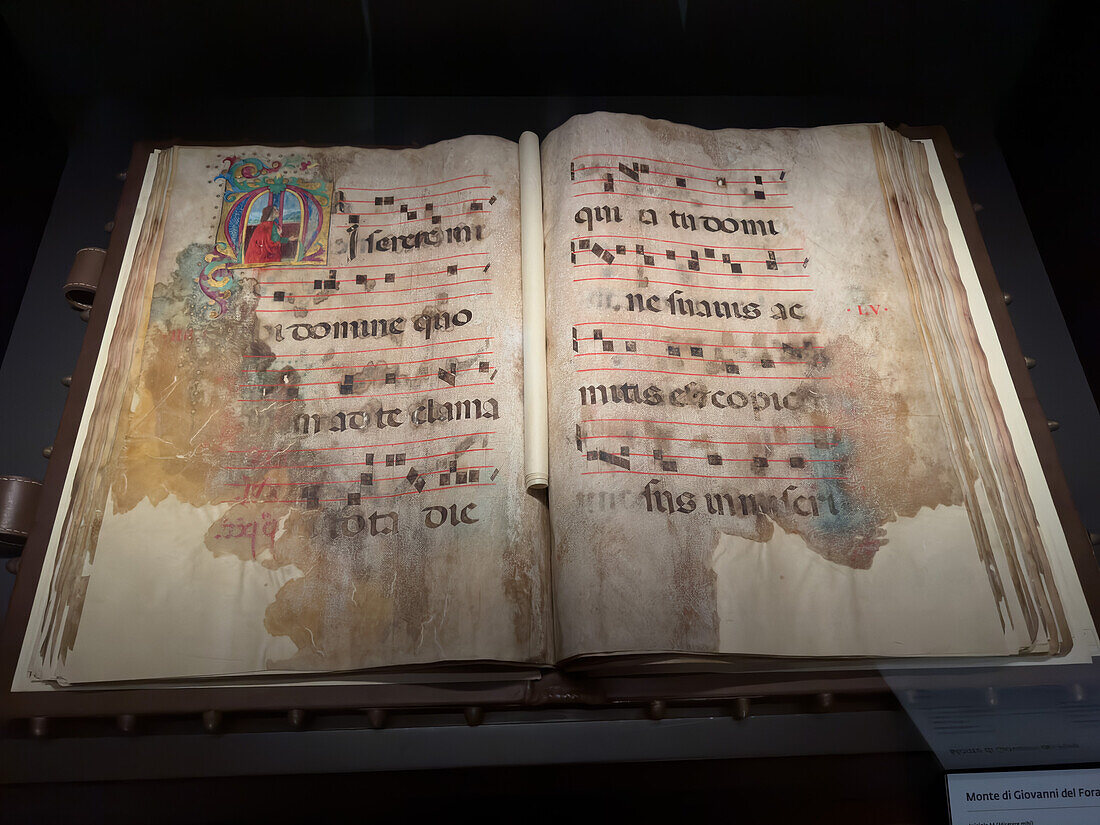 M
iserere mi
i domine quo
m ad te clama
tota die
qui a tu domi
ne suavis ac
· LV ·
mitis es & copio
sus in miseri
Monte di Giovanni del Fora